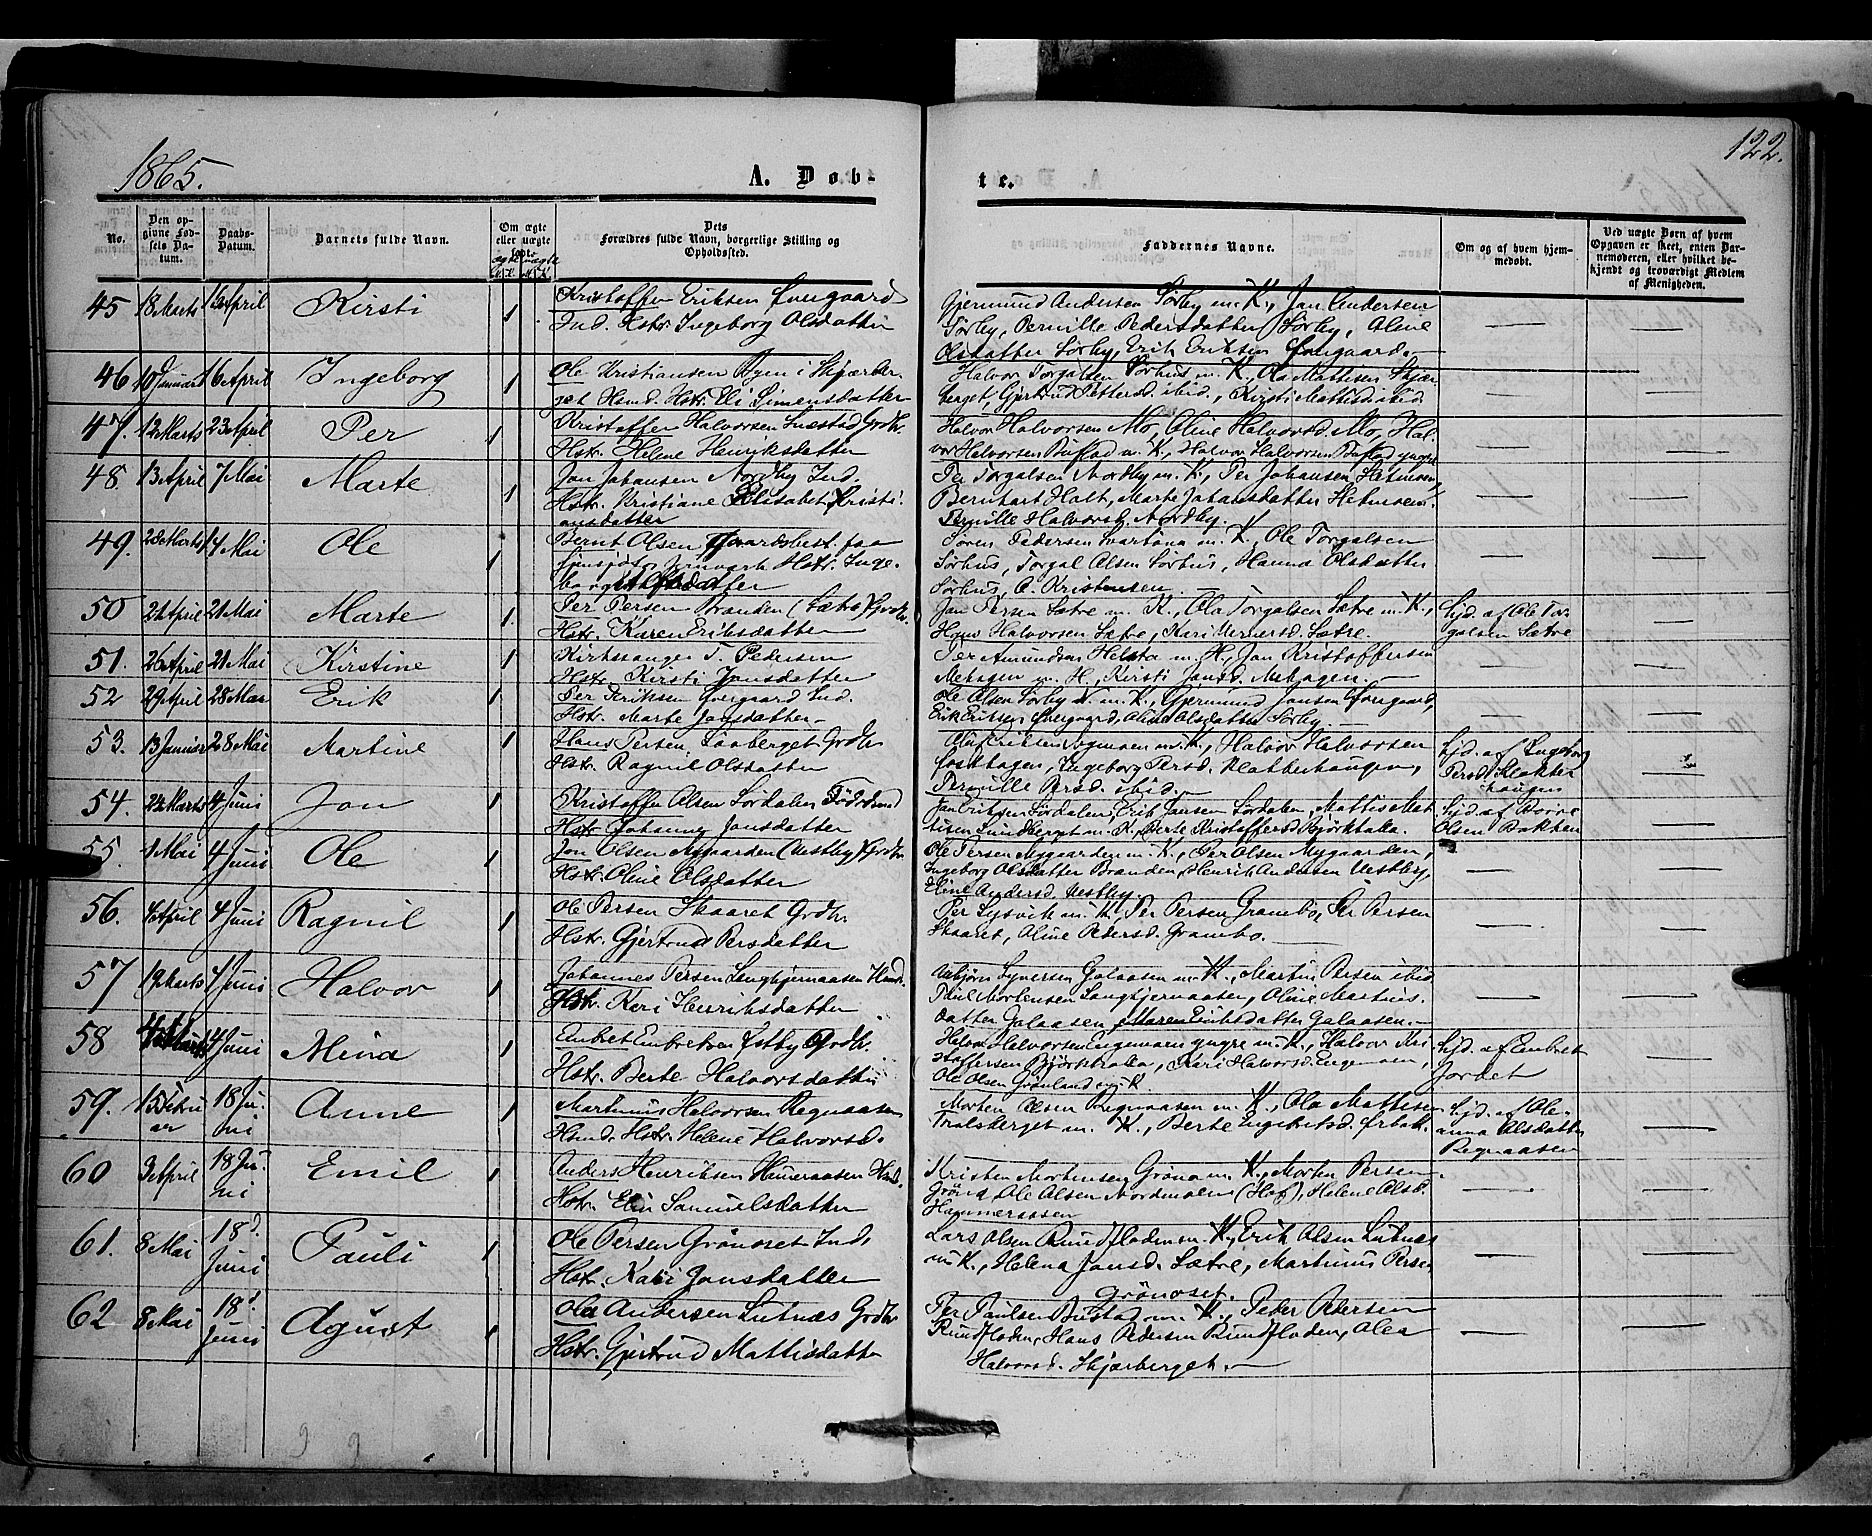 1865.
A. Døb-
te.
122.
No.
Den opgivne Fødsels Datum.
Daabs-Datum.
Barnets fulde Navn.
Om ægte eller uægte født.
Dets Forældres fulde Navn, borgerlige Stilling og Opholdssted.
Faddernes Navne.
Om og af hvem hjemmedøbt.
Ved uægte Børn af hvem Opgaven er skeet, enten Barnemoderen, eller hvilket bekjendt og troværdigt Medlem af Menigheden.
45 18 Marts 16 April Kirsti 1 Kristoffer Eriksen Øvergaard
Ind. Hstr. Ingeborg Olsdatter
Gjermund Andersen Sørby m. K., Jan Andersen
Sørby, Pernille Pedersdatter Sørby, Oline
Olsdatter Sørby, Erik Eriksen Øvergaard.
46 10 Januar 16 April Ingeborg 1 Ole Kristiansen Ryen i Skjærber-
get Hsmd. Hstr. Eli Simensdatter
Halvor Torgalsen Sørhus m. K., Ola Mattisen Skjær-
berget, Gjertrud Pettersd. ibid., Kirsti Mattisd. ibid.
47. 12 Marts 23 April Per 1 Kristoffer Halvorsen Grdbr.
Hstr. Helene Henriksdatter
Halvor Halvorsen Mo, Oline Halvorsd. Mo, Hal-
vor Halvorsen m. K., Halvor Halvorsen yngre
48. 13 April 7 Mai Marte 1 Jon Johansen Nordby Ind.
Hstr. Kristiane Elisabet Kristi-
ansdatter
Per Torgalsen Nordby m. K., Per Johansen
Bernhart Holt, Marte Johansdatter
Pernille Halvorsd. Nordby.
49. 28 Marts 14 Mai Ole 1 Bernt Olsen Gaardsbest. paa
Hstr. Inge-
borg datter
Søren Pedersen m. K., Ole Torgalsen
Sørhus, Torgal Olsen Sørhus, Hanna Olsdatter
Sørhus, O. Kristensen.
50 21 April 21 Mai Marte 1. Per Persen Branden (Sætre) Grdbr.
Hstr. Karen Eriksdatter
Jan Persen Sætre m. K., Ola Torgalsen Sætre m. K.,
Halvorsen Sætre, Kari Sætre.
Hjd. af Ole Tor-
galsen Sætre
51. 26 April 21 Mai Kirstine 1 Kirkesanger T. Pedersen
Hstr. Kirsti Jonsdatter
Per Amundsen m. H., Jan Kristoffersen
m. H., Kirsti Jansd.
52 29 April 28 Mai Erik 1 Per Eriksen Øvergaard Ind.
Hstr. Marte Jonsdatter
Ole Olsen Sørby m. K., Gjermund Jansen Øvergaard,
Erik Eriksen Øvergaard, Oline Olsdatter Sørby.
53. 13 Januar 28 Mai Martine 1 Hans Persen Grdbr
Hstr. Ragnil Olsdatter
Eriksen m. K., Halvor Halvorsen
Ingeborg Persd. Klakkerhaugen,
Pernille Persd. ibid.
Hjd. af Ingeborg
Persd. Klakker-
haugen
54. 22 Marts 4 Juni Jon 1 Kristoffer Olsen Sørdalen
Hstr. Johanne Jonsdatter
Jan Eriksen Sørdalen, Erik Jansen Sørdalen, Mattis Mat-
tisen m. K., Berte Kristoffersd. Björkbakka.
Hjd. af
Olsen Bakken
55. 1 Mai 4 Juni Ole 1 Jon Olsen Nygaarden (Vestby) Grdbr.
Hstr. Oline Olsdatter
Ole Persen Nygaarden m. K., Per Olsen Nygaarden,
Ingeborg Olsdatter Branden, Henrik Andersen Vestby,
Eline Andersd. Vestby.
56. 4 April 4 Juni Ragnil 1 Ole Persen Skaaret Grdbr
Hstr. Gjertrud Persdatter
Per Lysvik m. K., Per Persen Grambo, Per Persen
Skaaret, Oline Pedersd. Grambo.
57 19 Marts 4 Juni Halvor 1 Johannes Persen Langtjernaasen Hsmd.
Hstr. Kari Henriksdatter
Syversen Galaasen m. K., Martin Persen ibid
Paul Mortensen Langtjernaasen, Oline Martins-
datter Galaasen, Maren Eriksdatter Galaasen.
58 4 Juni Mina 1 Embret Embretsen Østby Grdbr.
Hstr. Berte Halvorsdatter
Helvor Halvorsen Engemoen yngre m. K., Halvor Kri-
stoffersen Björkbakka, Kari Halvorsd. Engemoen,
Ole Olsen Grönland m. K.
Hjd. af Embret
Jordet
59. 15 Febru-
ar 18 Ju-
ni Anne 1 Martinus Halvorsen Regnaasen
Hsmd. Hstr. Helene Halvorsd.
Morten Olsen Regnaasen m. K., Ola Mattisen
m. K., Berte Engebretsd. Ørbak.
Hjd. af Ole-
anna Olsdatter
Regnaasen
60 3 April 18 Ju-
ni Emil 1 Anders Henriksen Hameraasen Hsmd.
Hstr. Elin Samuelsdatter
Kristen Mortensen Gröna m. K., Morten Persen
Gröna, Ole Olsen Nordmoen (Hof), Helene Olsd.
Hammeraasen
61. 8 Mai 18d
Juni Pauli 1 Ole Persen Grönoset Ind.
Hstr. Kari Jonsdatter
Lars Olsen Rundfloden m. K., Erik Olsen Lutnes
m. K., Helena Jansd. Sætre, Martinus Persen
Grönoset.
62 8 Mai 18d.
Juni Agust 1 Ole Andersen Lutnæs Grdbr
Hstr. Gjertrud Mattisdatter
Per Paulsen m. K., Peder Pedersen
Rundfloden, Hans Pedersen Rundfloden, Olea
Halvorsd. Skjærberget.